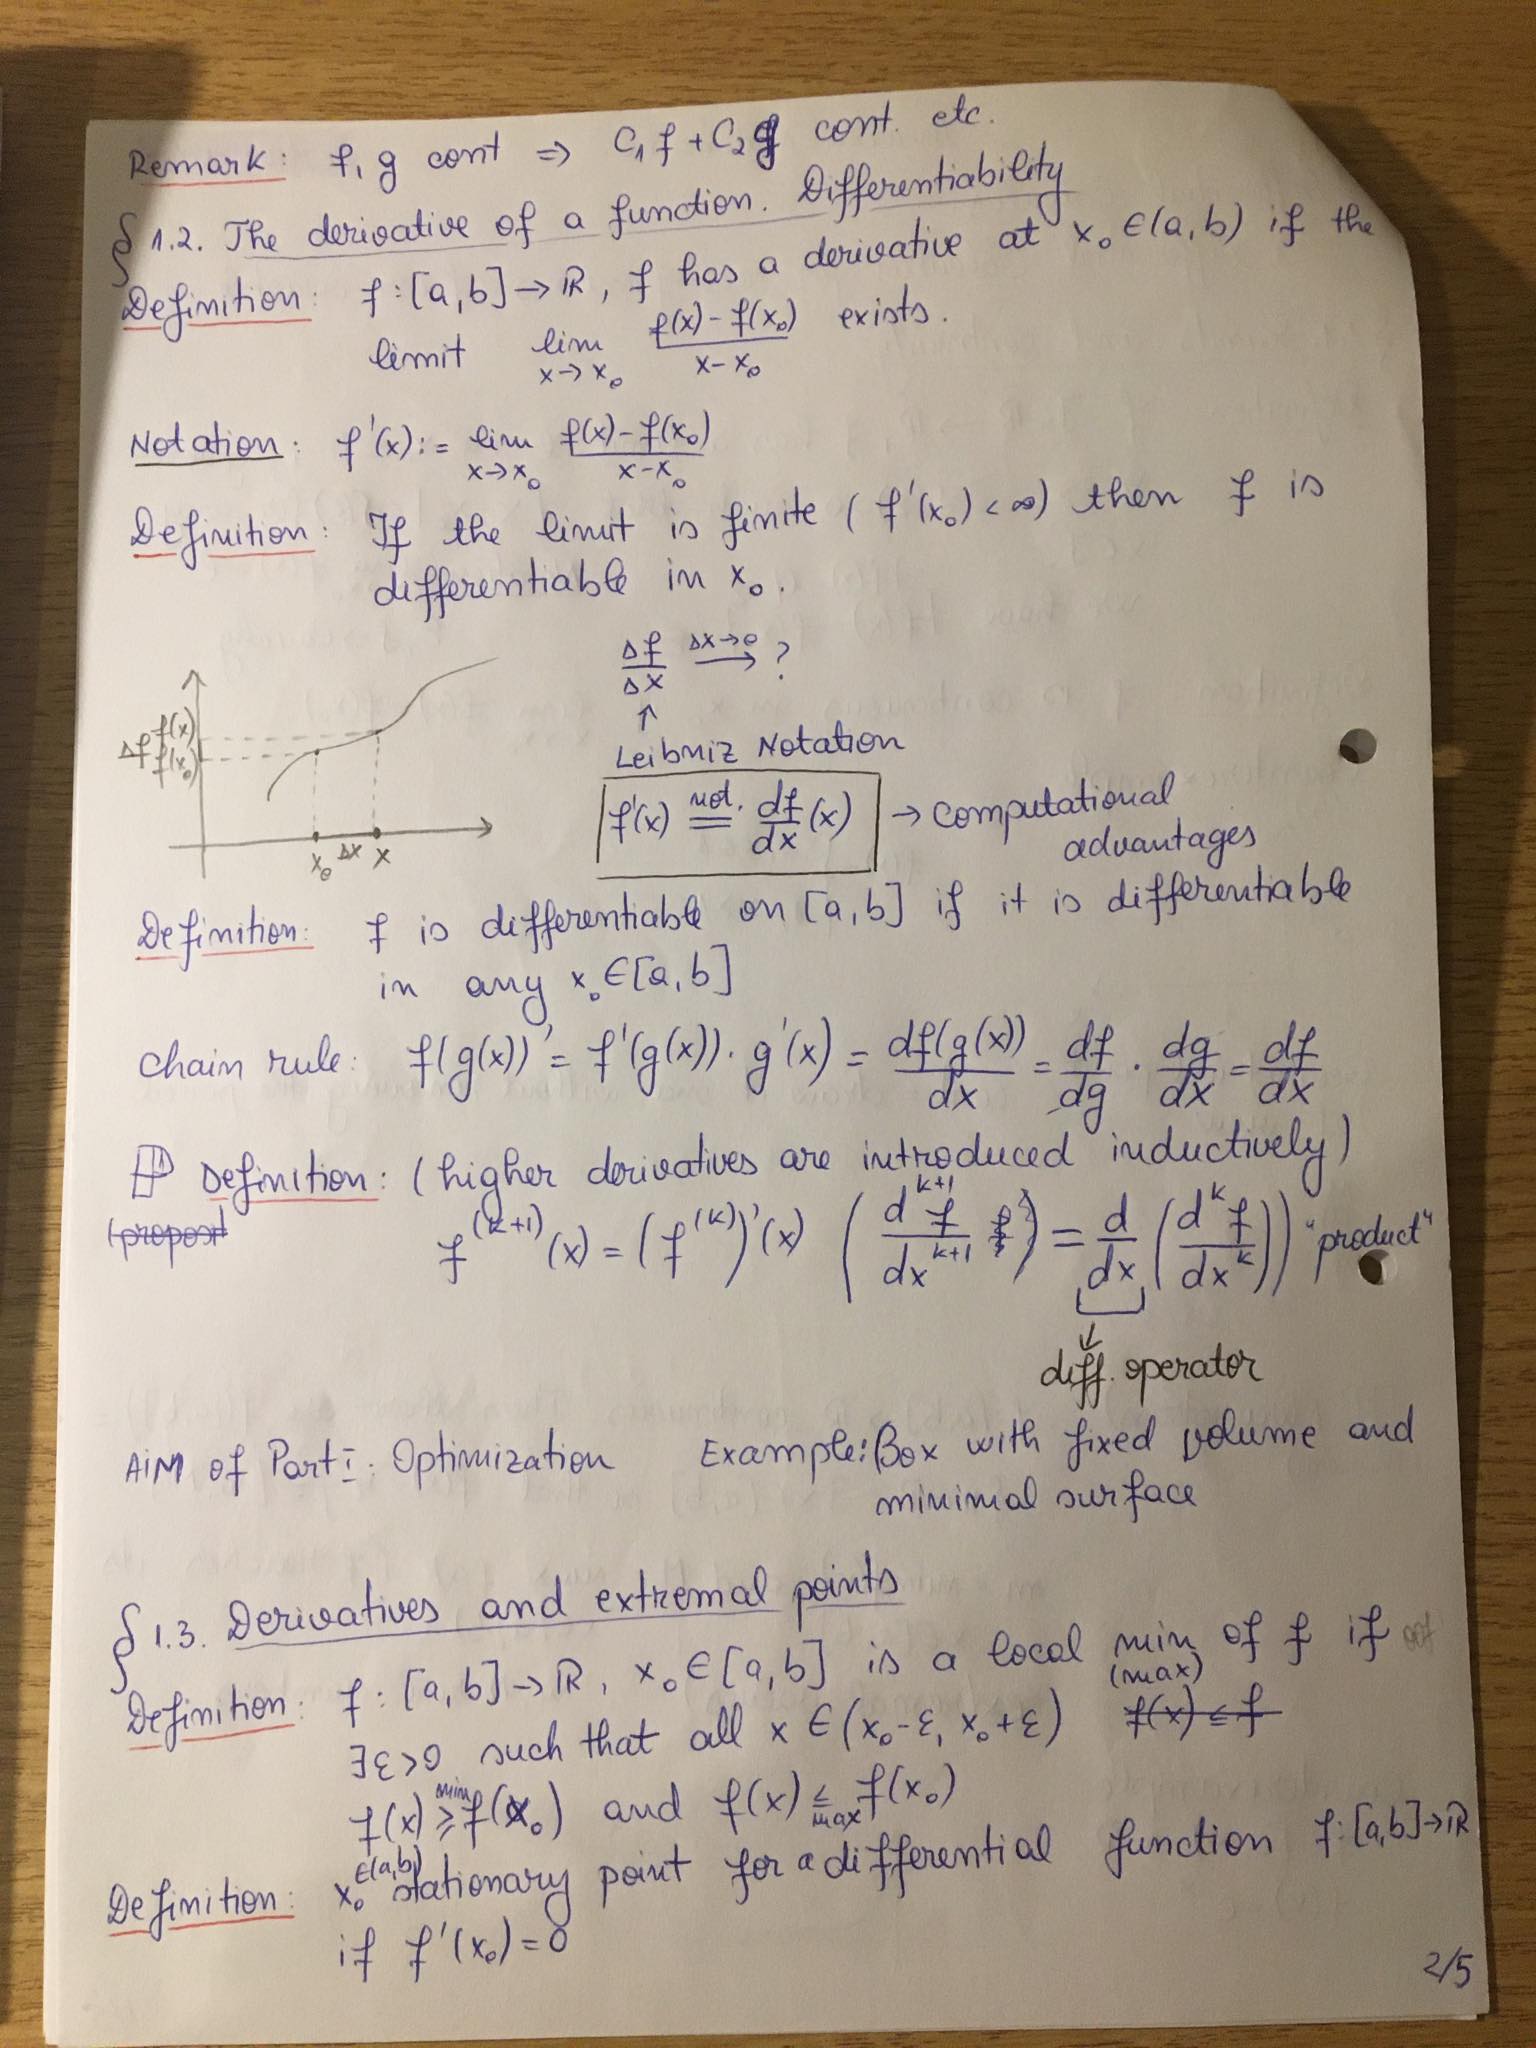 Remark: f, g cont ⇒ C₁f + C₂g cont. etc.
§ 1.2. The derivative of a function. Differentiability
Definition: f : [a,b] → ℝ, f has a derivative at x₀ ∈ (a,b) if the
limit lim x→x₀ (f(x) - f(x₀))/(x - x₀) exists.
Notation: f'(x) := lim x→x₀ (f(x) - f(x₀))/(x - x₀)
Definition: If the limit is finite (f'(x₀) < ∞) then f is
differentiable in x₀.
Δf/Δx Δx→0 → ?
↑
Leibniz Notation
f'(x) not. = df/dx (x) → computational
advantages
Δf f(x)
f(x₀)
x₀ Δx x
Definition: f is differentiable on [a,b] if it is differentiable
in any x₀ ∈ [a,b]
Chain rule: f(g(x))' = f'(g(x)) · g'(x) = df(g(x))/dx = df/dg · dg/dx = df/dx
Definition: (higher derivatives are introduced inductively)
f^(k+1)(x) = (f^(k))'(x) (d^(k+1)f/dx^(k+1) = d/dx (d^k f/dx^k)) "product"
↓
diff. operator
AIM of Part I: Optimization Example: Box with fixed volume and
minimal surface
§ 1.3. Derivatives and extremal points
Definition: f : [a,b] → ℝ, x₀ ∈ [a,b] is a local min of f if
(max)
∃ε>0 such that all x ∈ (x₀-ε, x₀+ε) f(x) ≤ f
f(x) ≥ min f(x₀) and f(x) ≤ max f(x₀)
Definition: x₀ ∈(a,b) stationary point for a differential function f: [a,b] → ℝ
if f'(x₀) = 0
2/5